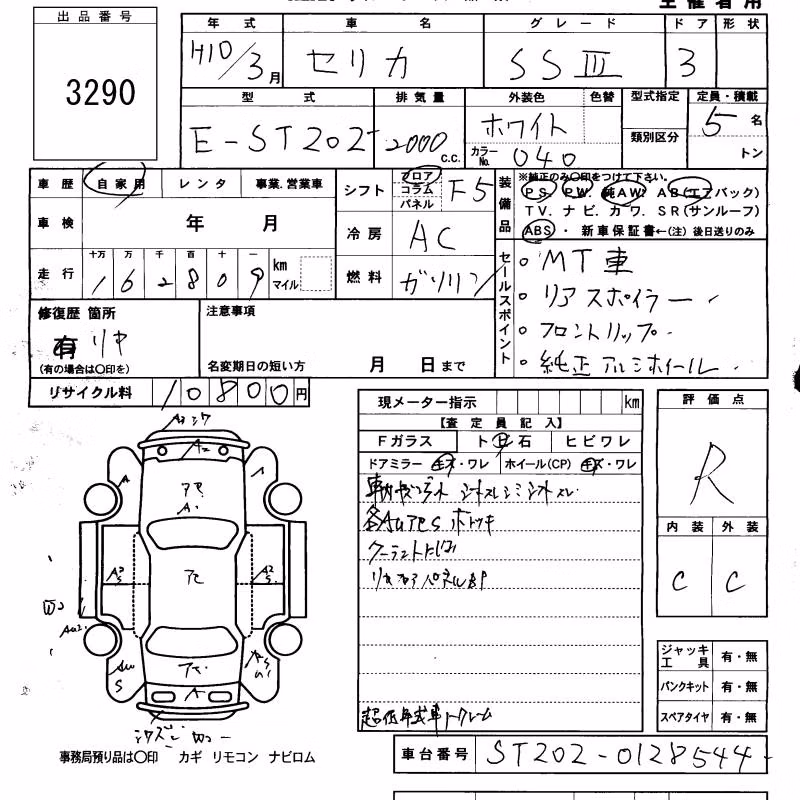 主催者用
出品番号
3290
年式 車名 グレード ドア 形状
H10/3月 セリカ SSIII 3
型式 排気量 外装色 色替 型式指定 定員・積載
E-ST202 2000 C.C. ホワイト 類別区分 5名
カラーNo. 040 トン
車歴 自家用 レンタ 事業.営業車
シフト フロア コラム パネル F5
装備品
※純正のみ〇印をつけて下さい。
PS. PW. 純AW. AB(エアバック)
TV. ナビ. カワ. SR(サンルーフ)
ABS・ 新車保証書←(注) 後日送りのみ
車検 年 月
冷房 AC
走行 十万 万 千 百 十 一
162809 km マイル
燃料 ガソリン
セールスポイント
○ MT車
○ リアスポイラー
○ フロントリップ
○ 純正アルミホイール
修復歴 箇所
有 リヤ
(有の場合は〇印を)
注意事項
名変期日の短い方 月 日まで
リサイクル料 10800円
現メーター指示 km
【査定員記入】
Fガラス ト ビ 石 ヒビワレ
ドアミラー キズ・ワレ ホイール(CP) キズ・ワレ
クーラント
リヤフロアパネル
超低年式車
評価点
R
内装 外装
C C
ジャッキ工具 有・無
パンクキット 有・無
スペアタイヤ 有・無
A
A2
A
A
S
A
S
事務局預り品は〇印 カギ リモコン ナビロム
車台番号 ST202-0128544